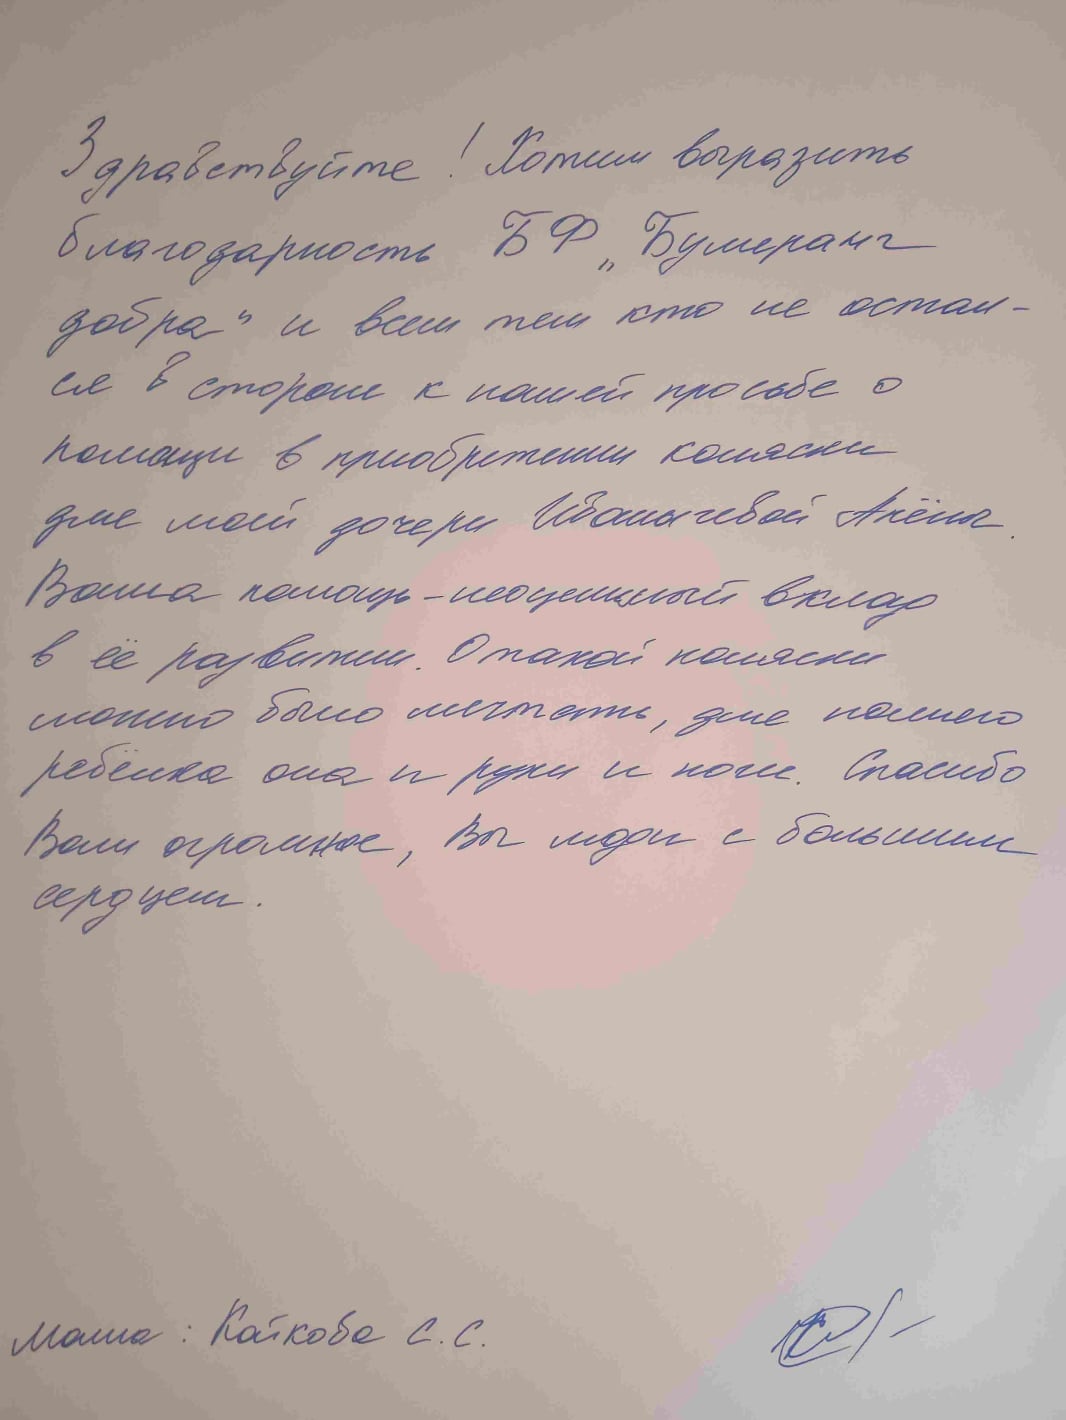 Здравствуйте! Хотим выразить
благодарность БФ „Бумеранг
добра“ и всем тем кто не остал-
ся в стороне к нашей просьбе о
помощи в приобретении коляски
для моей дочери Алёны.
Ваша помощь - неоценимый вклад
в её развитии. О такой коляски
можно было мечтать, для нашего
ребёнка она и руки и ноги. Спасибо
Вам огромное, Вы люди с большим
сердцем.
Мама: Кайкова С.С.